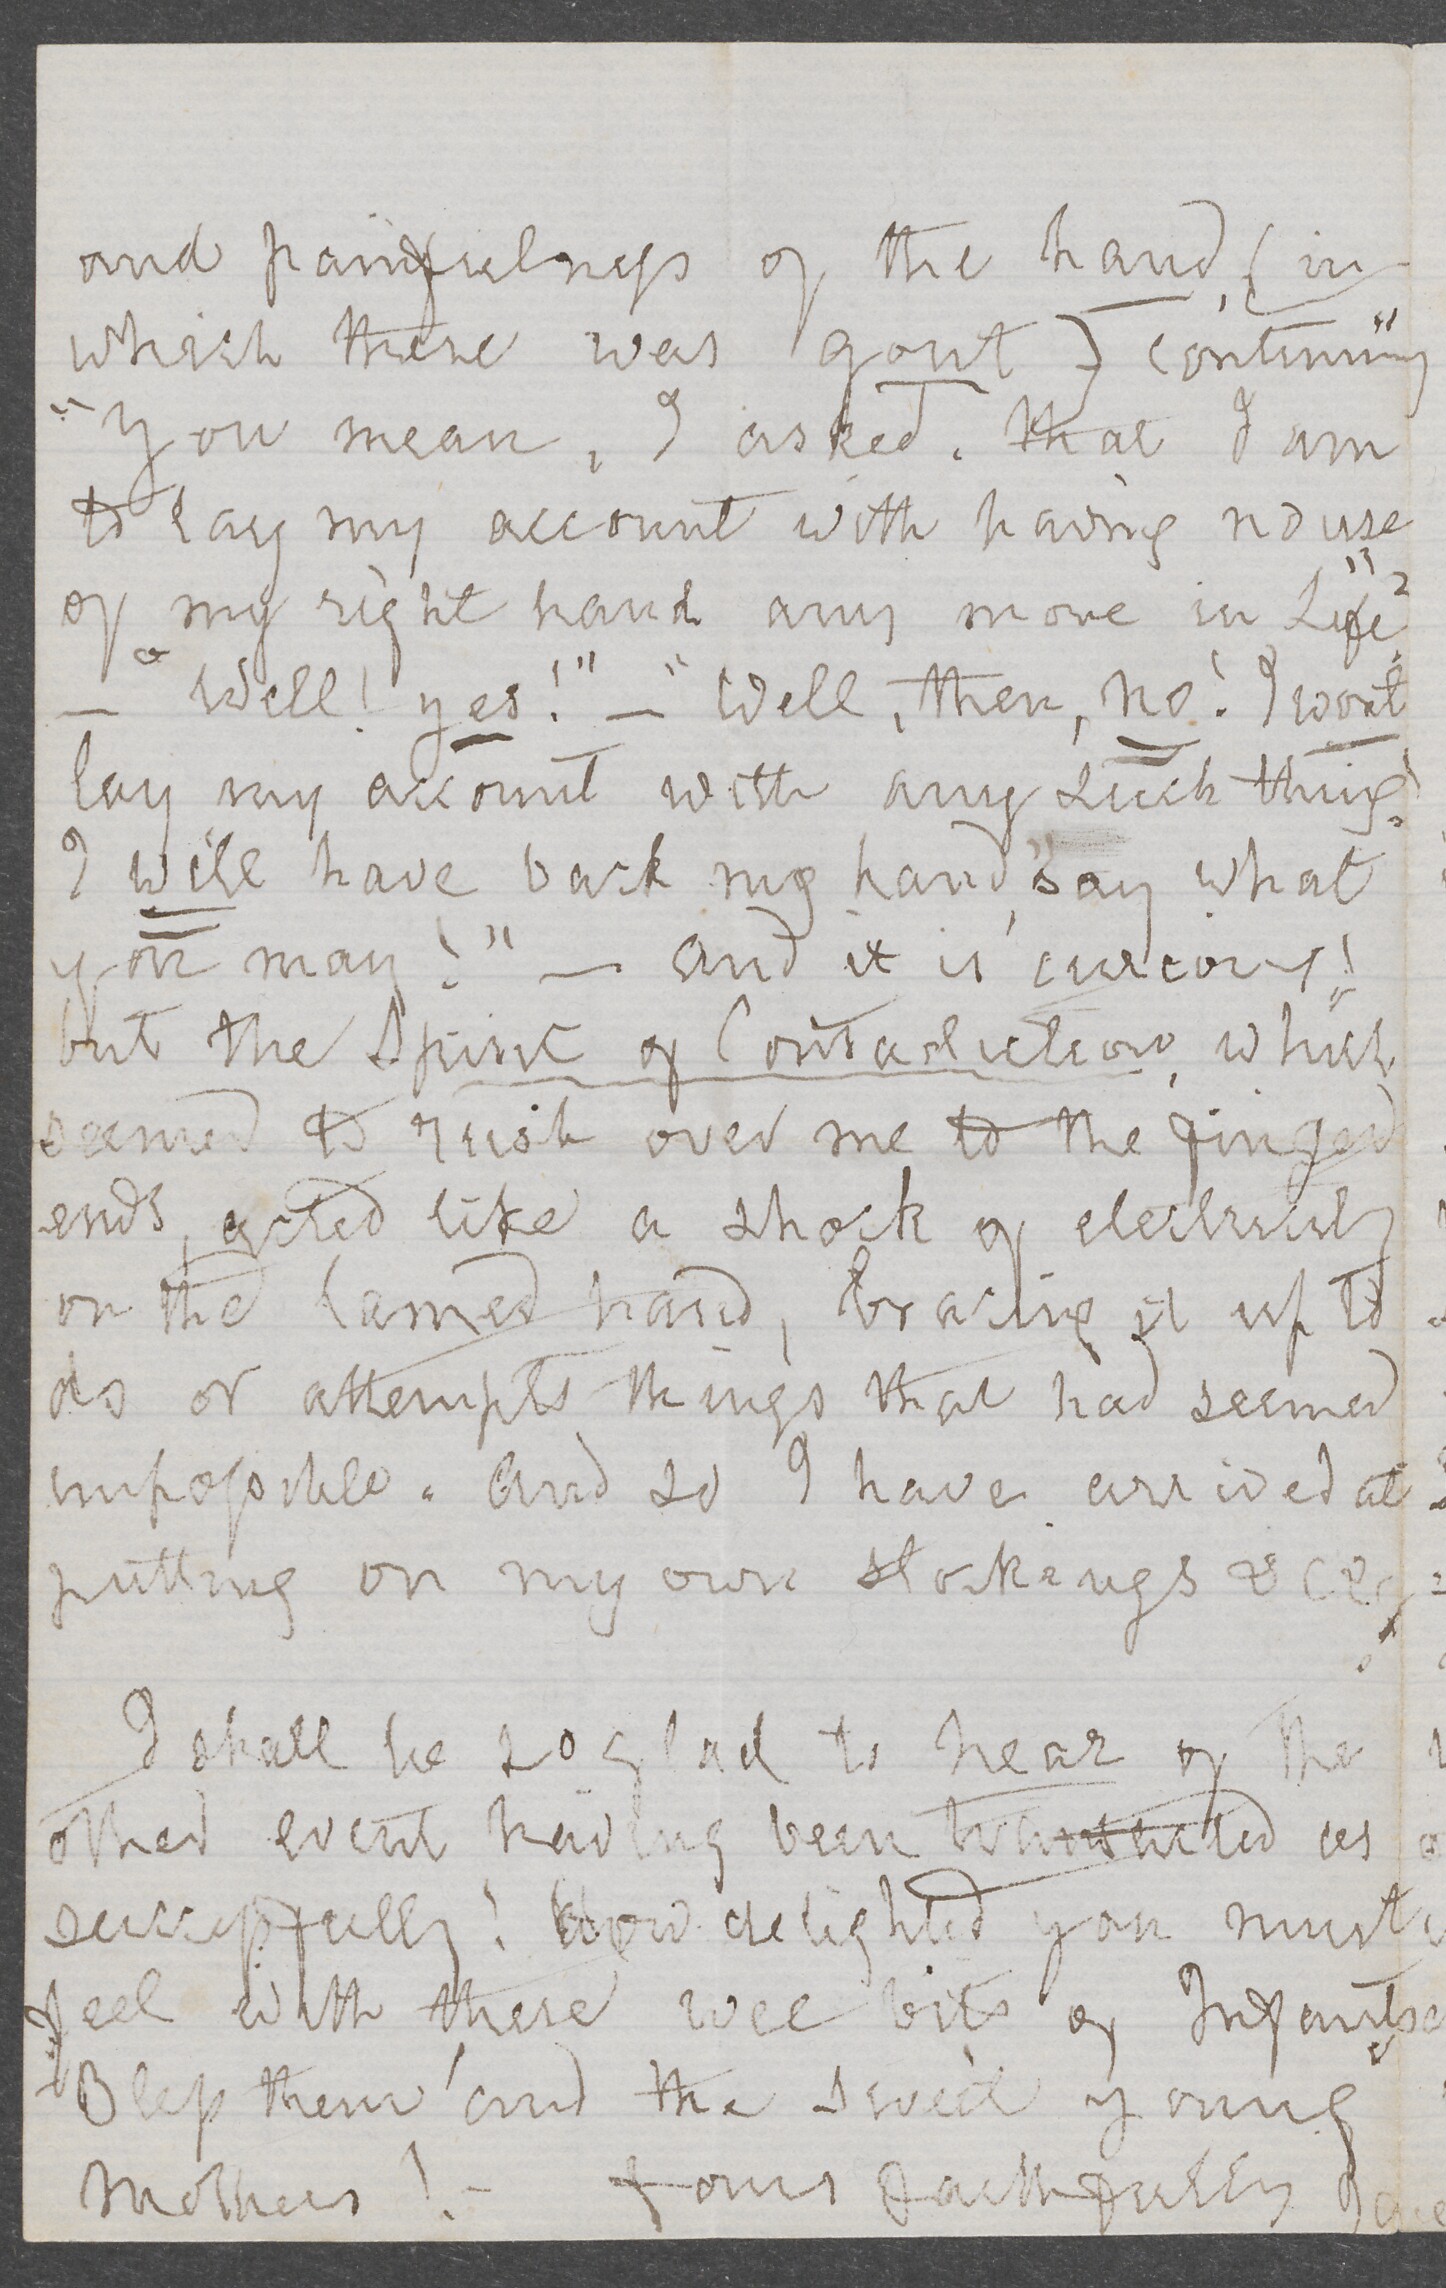 and painfulness of the hand, (in
which there was gout) continuing
"You mean, I asked. that I am
to lay my account with having no use
of my right hand any more in Life?"
— "Well! yes!" — "Well, then, no! I wont
lay my account with any such thing.
I will have back my hand, say what
you may!" — and it is curious!
but the Spirit of Contradiction, which
seemed to rush over me to the finger
ends, acted like a shock of electricity
on the lamed hand, bracing it up to
do or attempts things that had seemed
impossible. And so I have arrived at
putting on my own stockings &c &c

I shall be so glad to hear of the
other event having been transacted as
successfully! How delighted you must
feel with these wee bits of Infants
Bless them! and the sweet young
Mothers! — Yours faithfully